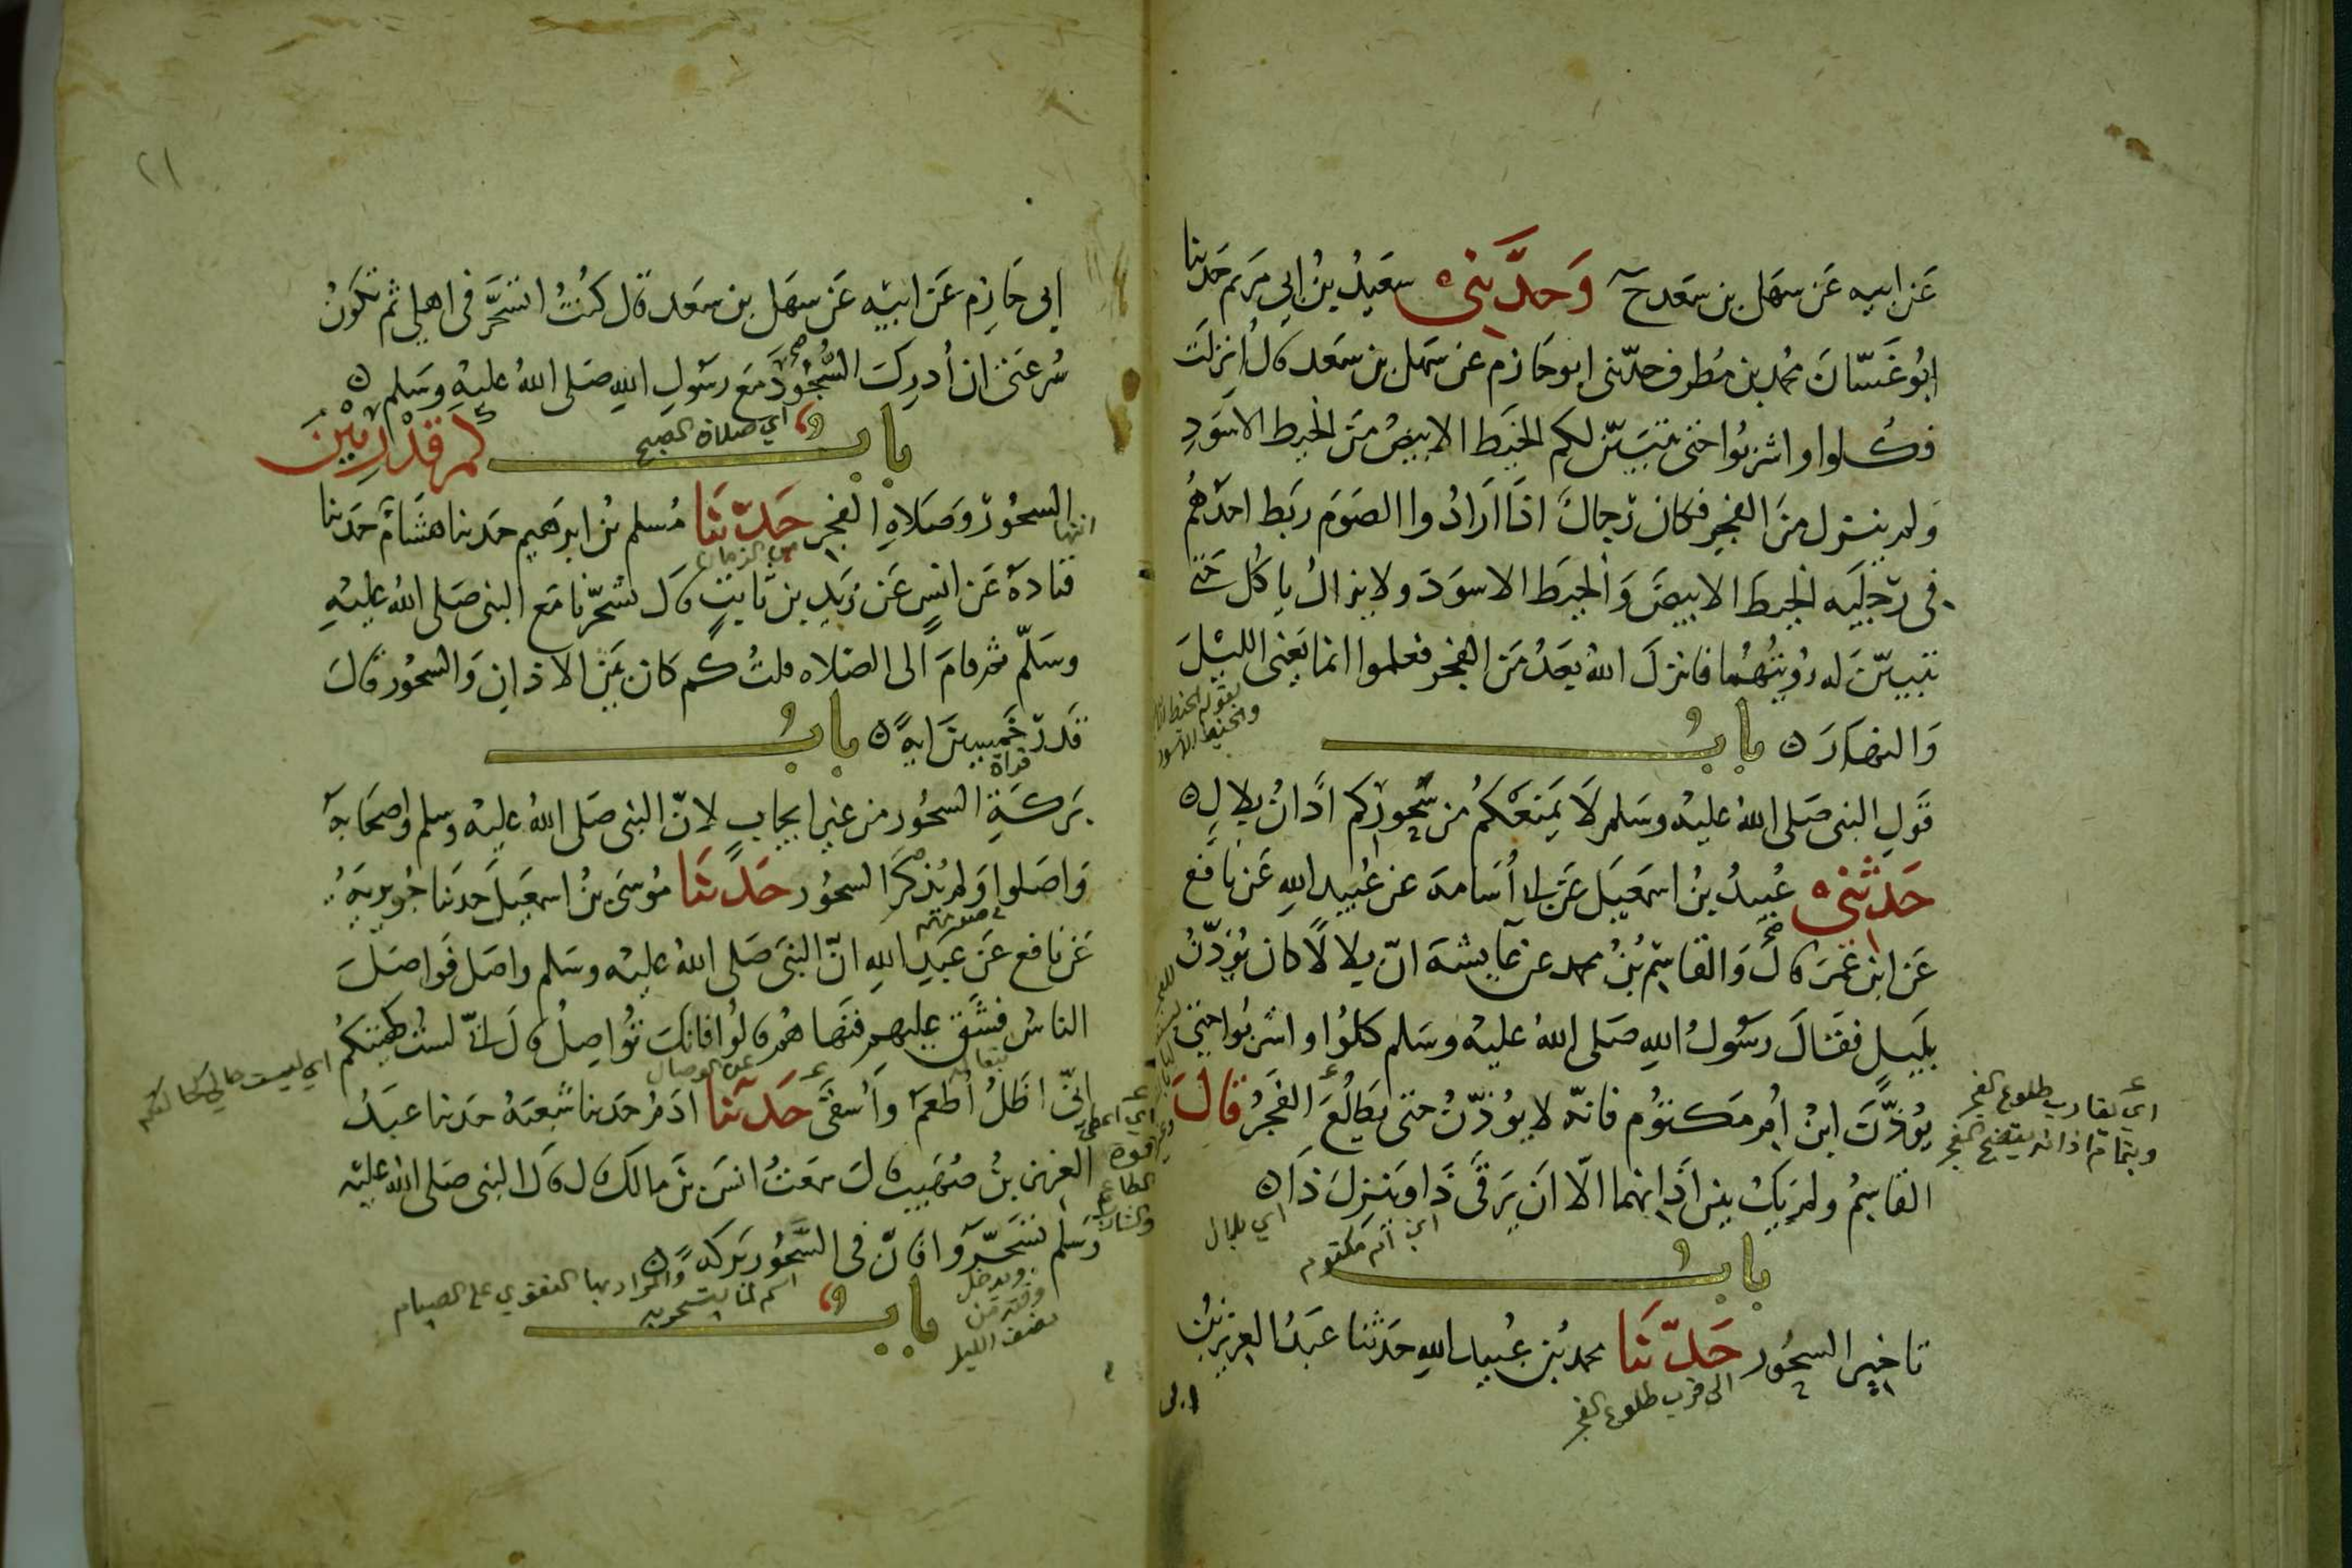 عن ابيه عن سهل بن سعد ح وَحدّثني سعيد بن ابي مريم حدثنا
ابو غسّان محمد بن مطرف حدّثني ابو حازم عن سهل بن سعد قال انزلت
فكلوا واشربوا حتى يتبيّن لكم الخيط الابيض من الخيط الاسود
ولم ينزل من الفجر فكان رجال اذا ارادوا الصوم ربط احدهم
في رجليه الخيط الابيض والخيط الاسود ولا يزال ياكل حتى
يتبيّن له رؤيتهما فانزل الله بعد من الفجر فعلموا انما يعني الليل
بقوله الخيط
والخيط الاسود
والنهار ه باب
قول النبي صلى الله عليه وسلم لا يمنعكم من سحوركم اذان بلال ه
حدثني عبيد بن اسمعيل عن ابي اسامة عن عبيد الله عن نافع
عن ابن عمر قال والقاسم بن محمد عن عايشة انّ بلالا كان يؤذّن
بليل فقال رسول الله صلى الله عليه وسلم كلوا واشربوا حتى
يؤذّن ابن ام مكتوم فانّه لا يؤذّن حتى يطلع الفجر قال
اي يقارب طلوع الفجر
وبتمام اذانه يتضح الفجر
القاسم ولم يك بين اذانهما الّا ان يرقى ذا وينزل ذا ه
ابن ام مكتوم
اي بلال
باب
تاخير السحور حدّثنا محمد بن عبيد الله حدثنا عبد العزيز بن
الى قرب طلوع الفجر
ابي
٢١
ابي حازم عن ابيه عن سهل بن سعد قال كنت اتسحّر في اهلي ثم تكون
سرعتي ان أدرك السُّجُود مع رسول الله صلى الله عليه وسلم ه
اي صلاة الصبح
باب كم قدر بين
انتها السحور وصلاة الفجر حدّثنا مسلم بن ابرهيم حدثنا هشام حدثنا
من الزمان
قتادة عن انس عن زيد بن ثابت قال تسحّرنا مع النبي صلى الله عليه
وسلّم ثم قام الى الصلاه قلت كم كان بين الاذان والسحور قال
قدر خمسين اية ه باب
قراة
بركة السحور من غير ايجاب لانّ النبي صلى الله عليه وسلم واصحابه
واصلوا ولم يذكر السحور حدّثنا موسى بن اسمعيل حدثنا جويرية
عن نافع عن عبد الله انّ النبي صلى الله عليه وسلم واصل فواصل
الناس فشق عليهم فنهاهم قالوا فانك تواصل قال انّي لست كهيئتكم
اي ليست حالي كحالتكم
عن الوصال
انّي اظل أطعم وأسقى حدّثنا ادم حدثنا شعبة حدثنا عبد
اي اعطى
قوة
الطاعم
والشارب
العزيز بن صهيب قال سمعت انس بن مالك قال قال النبي صلى الله عليه
وسلم تسحّروا فانّ في السَّحُور بركة ه
اسم لما يتسحر به
والمراد بها التقوي على الصيام
ويدخل
وقته من
نصف الليل
باب